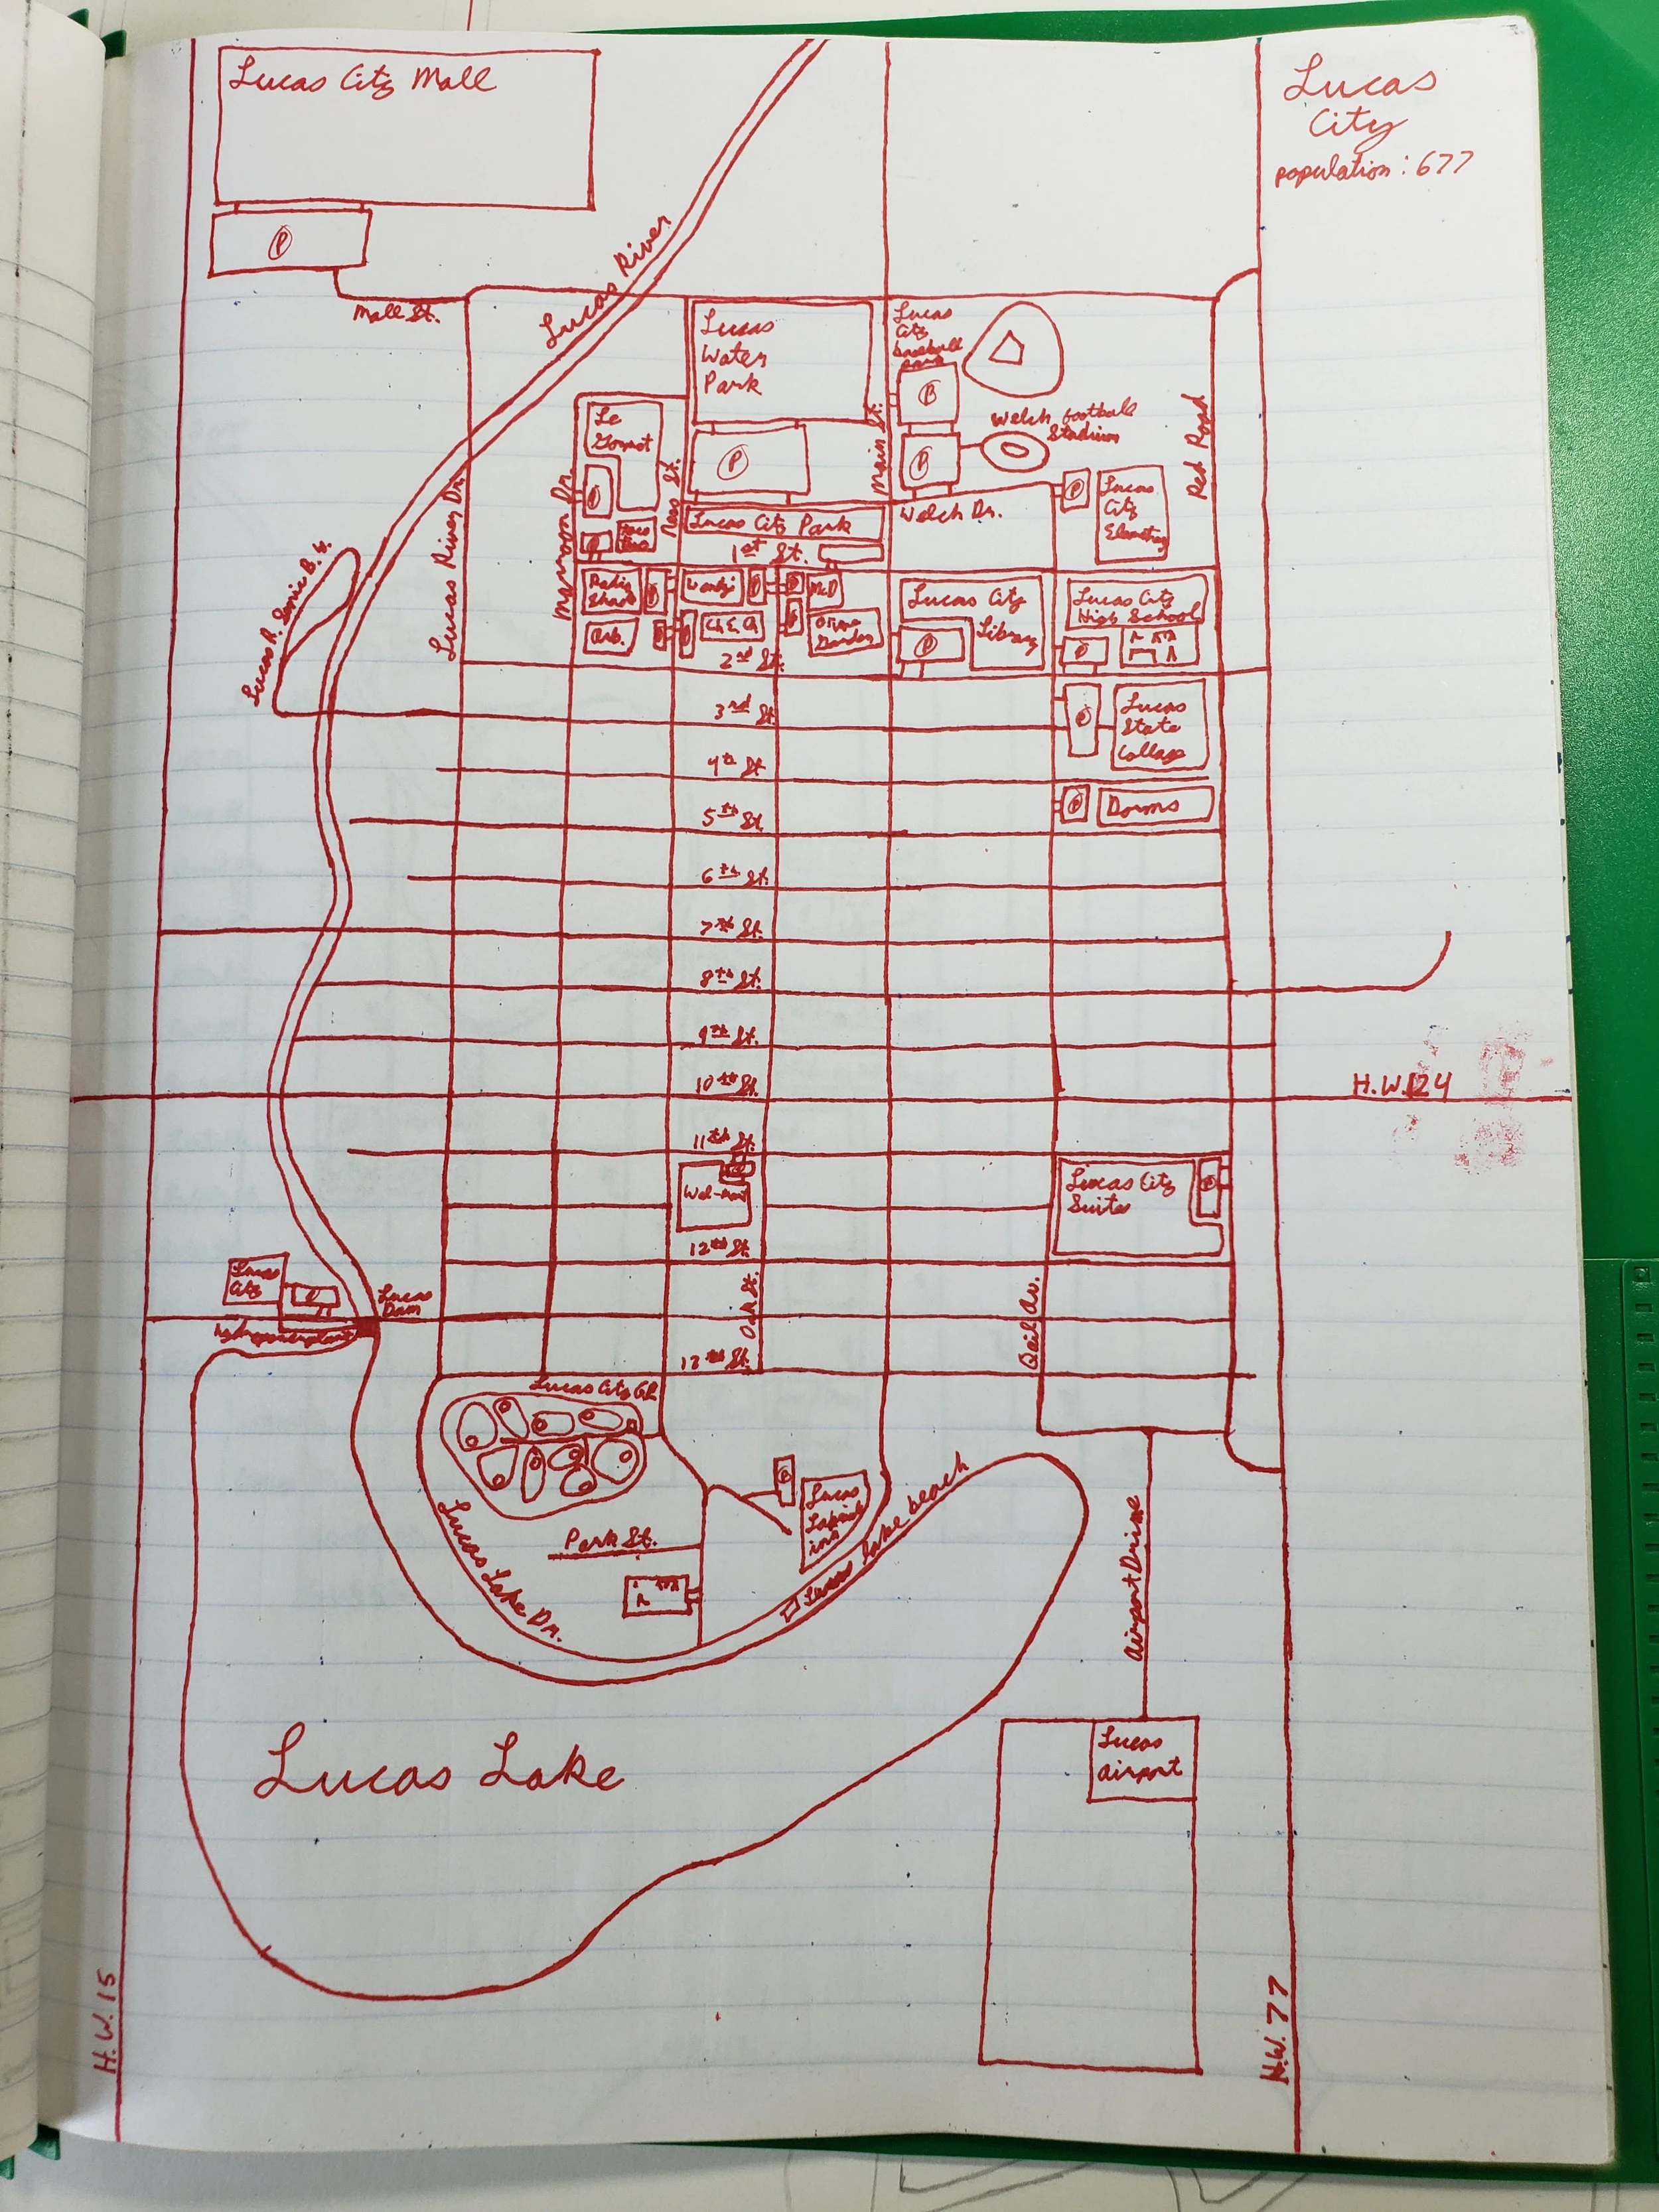 Lucas City Mall
P
Lucas
City
population: 677
Lucas River
Mall St.
Lucas
Water
Park
P
Lucas
City
baseball
Park
P
Welch football
Stadium
P
Main St.
Red Road
Le
Gormet
P
Ness St.
Lucas River Dr.
Lucas City Park
Welch Dr.
P
Lucas
City
Elemetry
P
1st St.
Lucas R. Senic B.
Radio
Shack
P
Wendzi
P
P
McD
Lucas City
Library
P
Lucas City
High School
P
Arb.
P
P
Ch E. Ch
P
Olive
Garden
2nd St.
3rd St.
P
Lucas
State
Collage
4th St
5th St.
P
Dorms
6th St.
7th St.
8th St.
9th St.
10th St.
H.W. 124
11th St.
P
Wal-mart
Lucas City
Suites
P
12th St.
Lucas
City
P
hydropowerplant
Lucas
Dam
Oak St.
Qail Av.
13th St.
Lucas City GR
P
Lucas
Lakeside
inn
Lucas lake beach
Park St.
Lucas Lake Dr.
Airport Drive
Lucas Lake
Lucas
airport
H.W. 15
H.W. 77